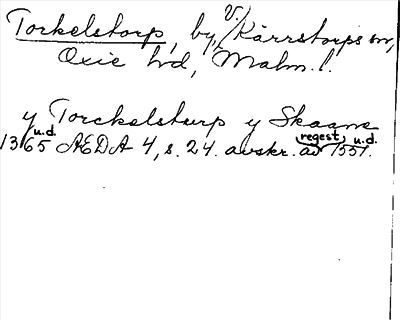 Torkelstorp, by, V. Kärrstorps sn,
Oxie hd, Malm. l.
y Torckelsturp y Skaane
1365 u.d. AEDA 4, s. 24. avskr. av regest 1551. u.d.